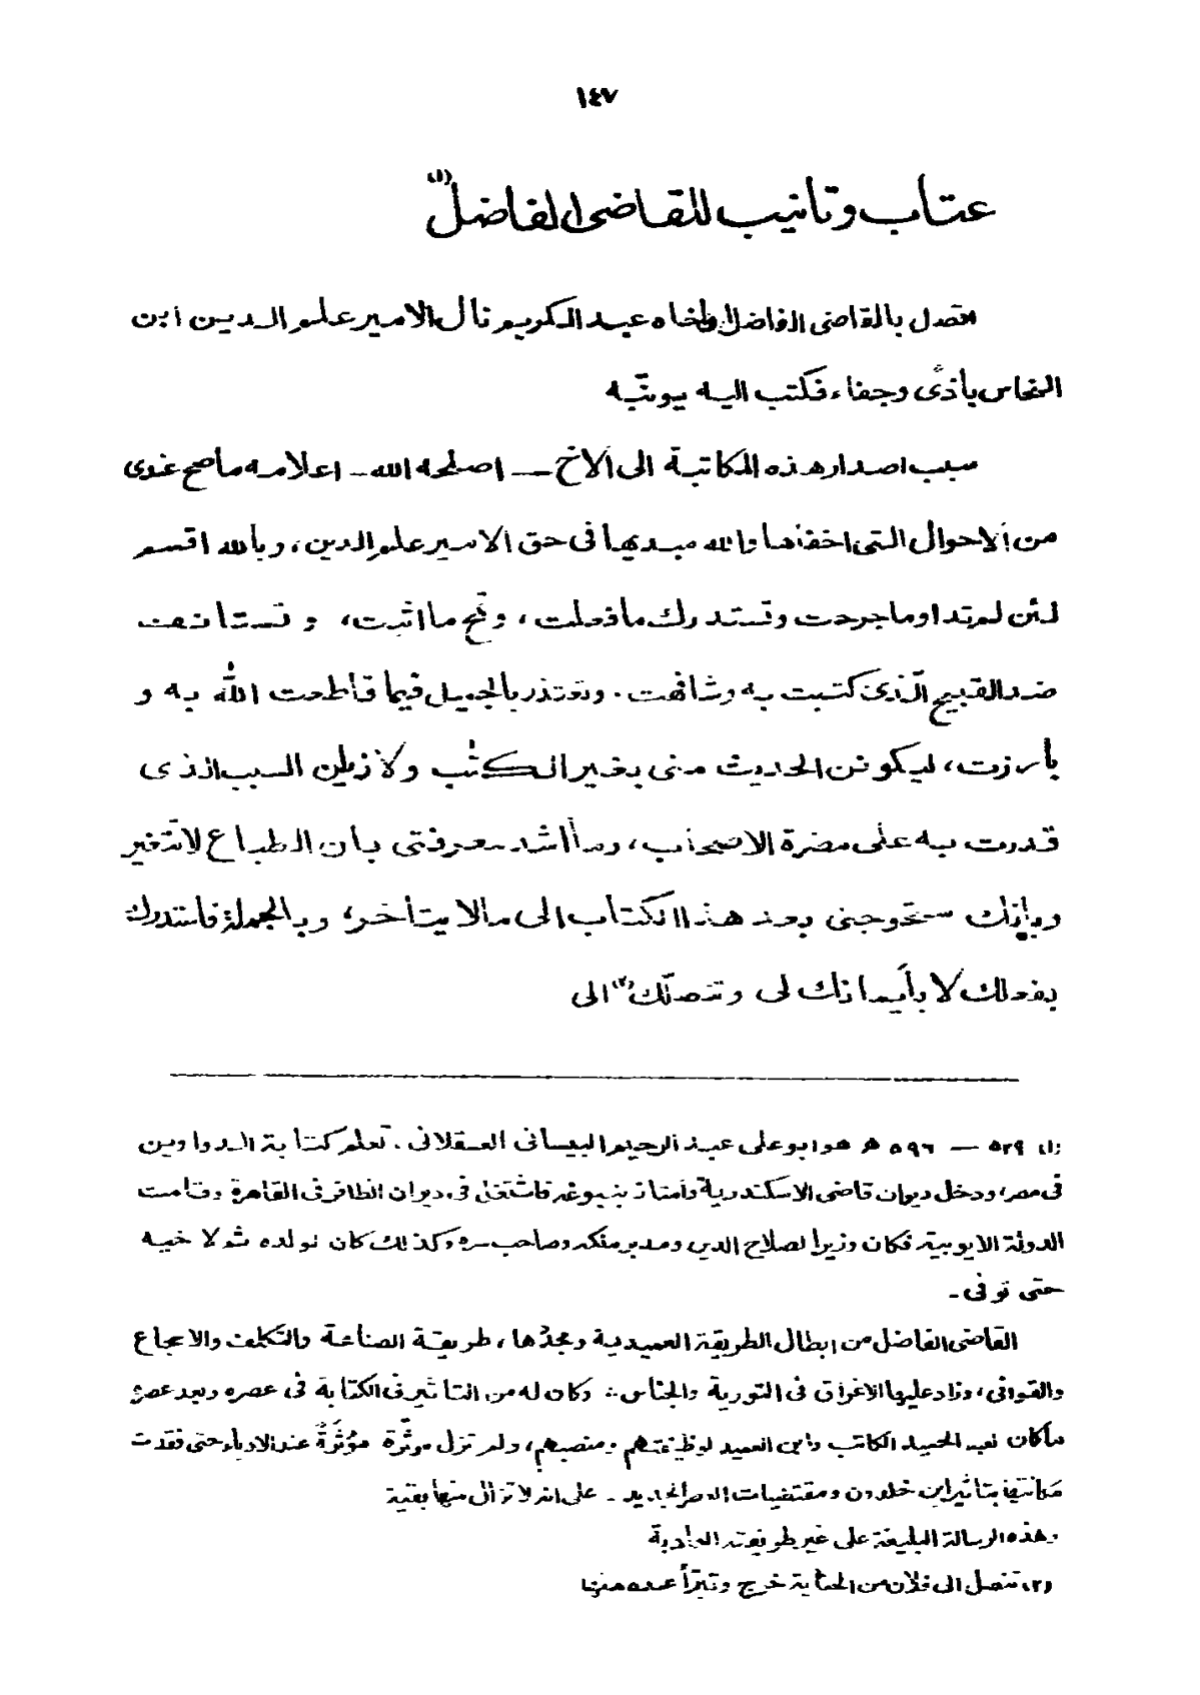 ١٤٧
عتاب وتأنيب للقاضى الفاضل(١)
اتصل بالقاضى الفاضل ان اخاه عبد الكريم نال الامير علم الدين ابن
النحاس بأذًى وجفاء فكتب اليه يونّبه
سبب اصدار هذه المكاتبة الى الأخ — اصلحه الله — اعلامه ماصح عندى
من الأحوال التى اخفاها والله مبديها فى حق الامير علم الدين، وبالله اقسم
لئن لم تداو ما جرحت وتستدرك ما فعلت، وتمح ما اثبت، وتستأنف
ضد القبيح الّذى كتبت به وشافهت. وتعتذر بالجميل فيما قاطعت الله به و
بارزت، ليكونن الحديث منى بغير الكتب ولازيلن السبب الذى
قدرت به على مضرة الاصحاب، وما أشد معرفتى بان الطباع لا تتغير
وبانك ستحوجنى بعد هذا الكتاب الى مالا يتأخر، وبالجملة فاستدرك
بفعلك لا بأيمانك لى وتنصلك(٢) الى
(١) ٥٢٩ — ٥٩٦ ھ هو ابو على عبد الرحيم البيسانى العسقلانى. تعلم كتابة الدواوين
فى مصر، ودخل ديوان قاضى الاسكندرية وامتاز بنبوغه فاشتغل فى ديوان الظافر فى القاهرة وقامت
الدولة الايوبية فكان وزيرا لصلاح الدين ومدبر ملكه وصاحب سره وكذلك كان لولده ثم لاخيه
حتى توفى -
القاضى الفاضل من ابطال الطريقة العميدية ومجدها، طريقة الصناعة والتكلف والاسجاع
والقوافى، وزاد عليها الاغراق فى التورية والجناس : وكان له من التاثير فى الكتابة فى عصره وبعد عصره
ماكان لعبد الحميد الكاتب وابن العميد لوظيفتهم ومنصبهم، ولم تزل موثّرة مؤثَرةً عند الادباء حتى فقدت
مكانتها بتاثير ابن خلدون ومقتضيات العصر الجديد - على انه لا تزال منها بقية
وهذه الرسالة البليغة على غير طريقته العادية
(٢) تنصل الى فلان من الجناية خرج وتبرّأ عنده منها